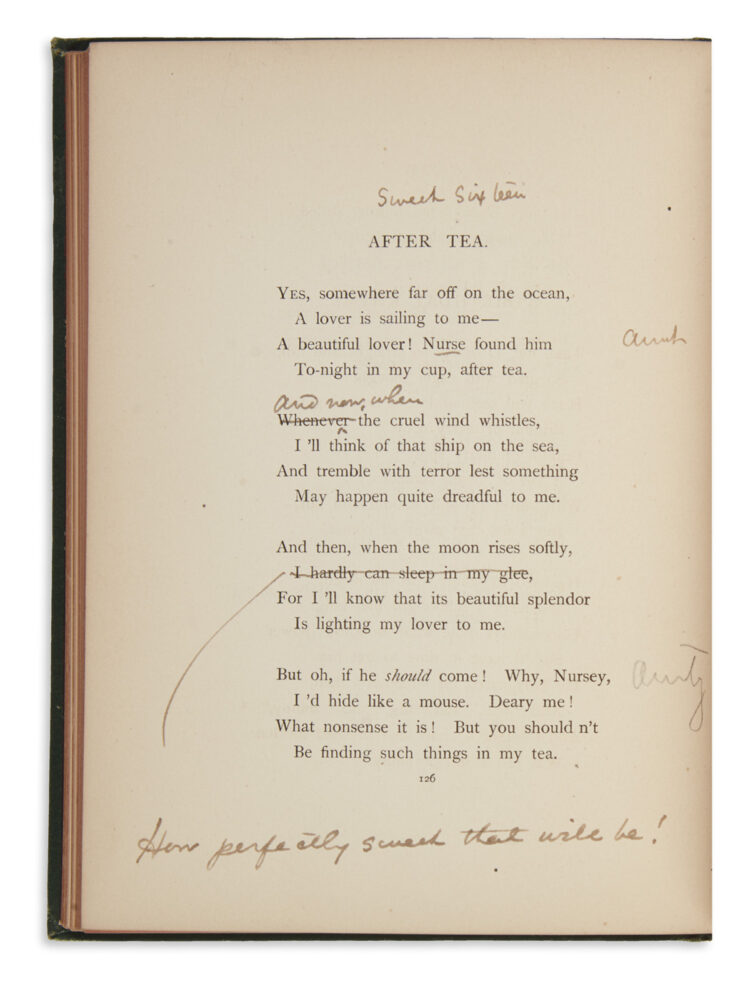 Sweet Sixteen
AFTER TEA.
YES, somewhere far off on the ocean,
A lover is sailing to me—
A beautiful lover! Nurse found him
Aunt
To-night in my cup, after tea.
And now, when
Whenever the cruel wind whistles,
I 'll think of that ship on the sea,
And tremble with terror lest something
May happen quite dreadful to me.
And then, when the moon rises softly,
I hardly can sleep in my glee,
For I 'll know that its beautiful splendor
Is lighting my lover to me.
But oh, if he should come! Why, Nursey,
Aunty
I 'd hide like a mouse. Deary me!
What nonsense it is! But you should n't
Be finding such things in my tea.
126
How perfectly sweet that will be!